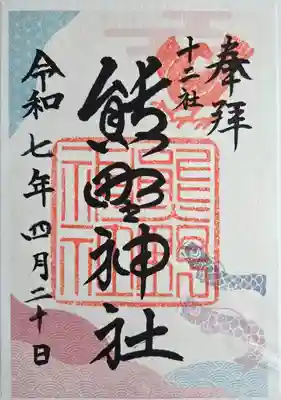 奉拝
十二社
熊野神社
熊野神社
令和七年四月二十日